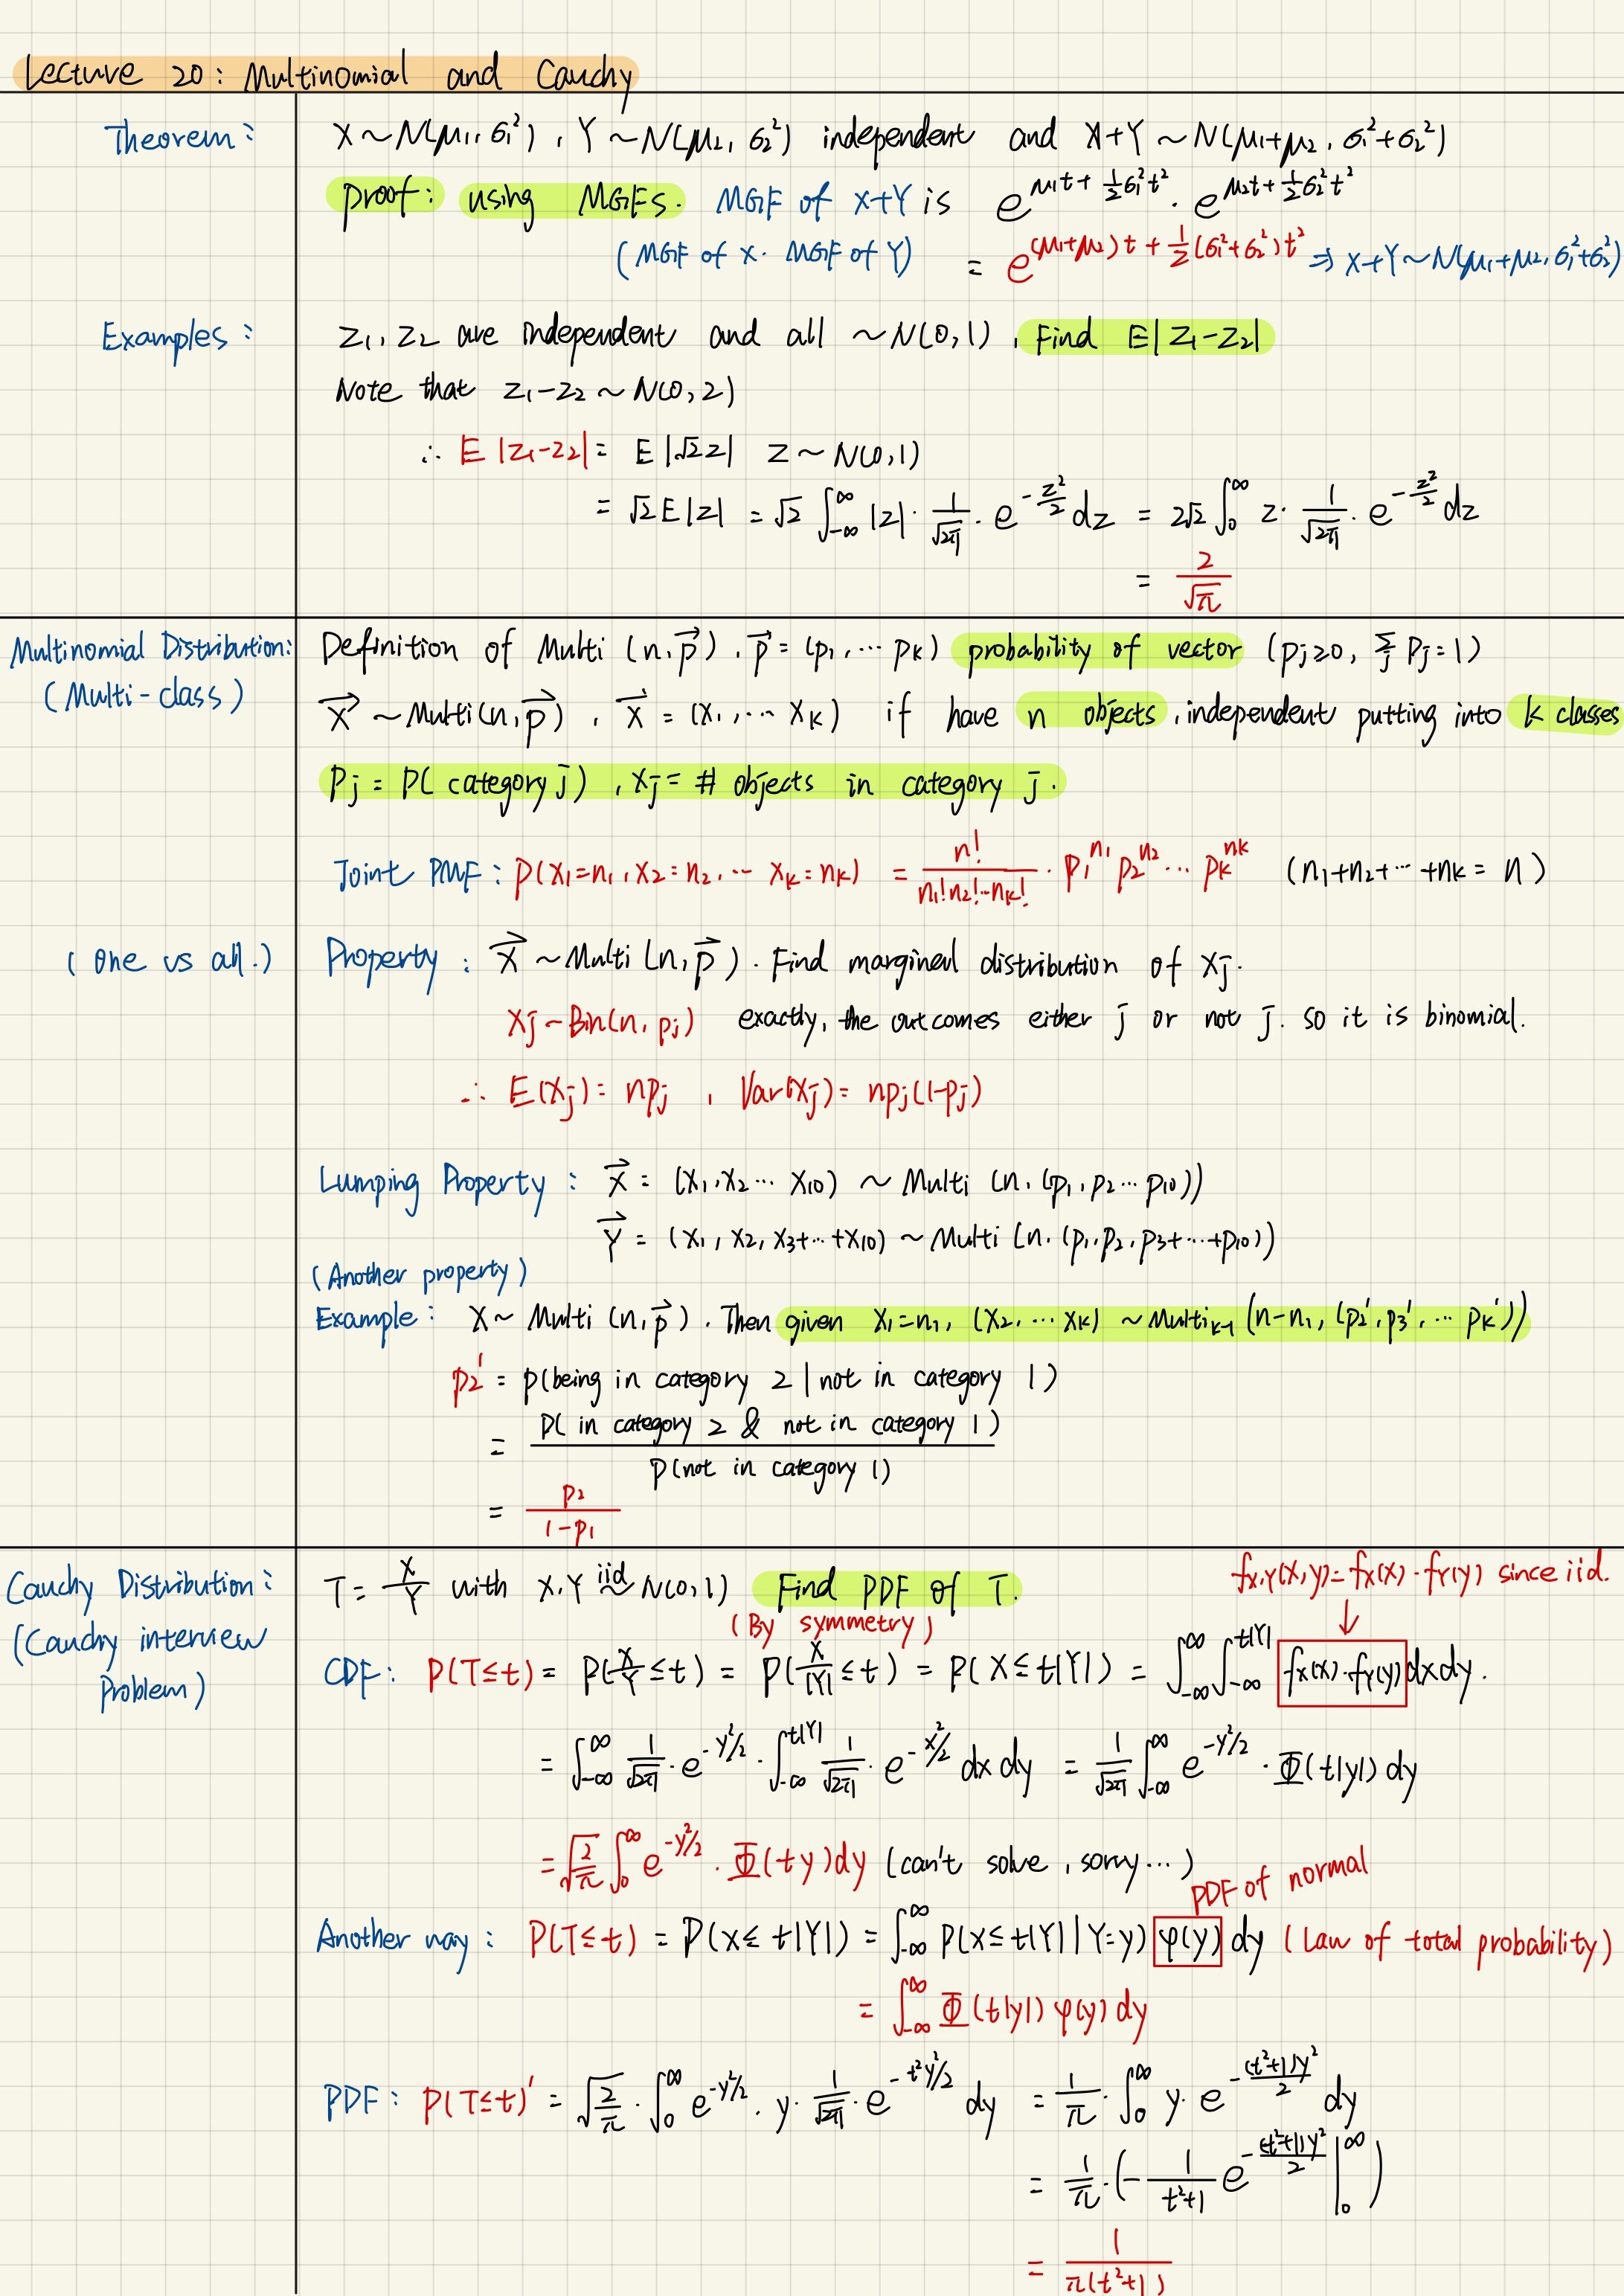 Lecture 20: Multinomial and Cauchy
Theorem: X ~ N(μ₁, σ₁²), Y ~ N(μ₂, σ₂²) independent and X+Y ~ N(μ₁+μ₂, σ₁²+σ₂²)
proof: using MGFs. MGF of X+Y is e^{μ₁t + ½σ₁²t²} · e^{μ₂t + ½σ₂²t²}
(MGF of X · MGF of Y) = e^{(μ₁+μ₂)t + ½(σ₁²+σ₂²)t²} ⇒ X+Y ~ N(μ₁+μ₂, σ₁²+σ₂²)
Examples: Z₁, Z₂ are independent and all ~ N(0,1), Find E|Z₁-Z₂|
Note that Z₁-Z₂ ~ N(0,2)
∴ E|Z₁-Z₂| = E|√2Z| Z ~ N(0,1)
= √2E|Z| = √2 ∫_{-∞}^{∞} |z| · 1/√2π · e^{-z²/2} dz = 2√2 ∫_0^∞ z · 1/√2π · e^{-z²/2} dz
= 2/√π
Multinomial Distribution: Definition of Multi (n, p⃗), p⃗ = (p₁, … pₖ) probability of vector (pⱼ≥0, Σⱼ Pⱼ=1)
(Multi-class) X⃗ ~ Multi(n, p⃗), X⃗ = (X₁, … Xₖ) if have n objects, independent putting into k classes
Pⱼ = P(category j), Xⱼ = # objects in category j.
Joint PMF: P(X₁=n₁, X₂=n₂, … Xₖ=nₖ) = n!/(n₁!n₂!…nₖ!) · p₁^{n₁} p₂^{n₂} … pₖ^{nₖ} (n₁+n₂+…+nₖ = n)
(one vs all.) Property: X⃗ ~ Multi (n, p⃗). Find marginal distribution of Xⱼ.
Xⱼ ~ Bin(n, pⱼ) exactly, the outcomes either j or not j. so it is binomial.
∴ E(Xⱼ) = npⱼ, Var(Xⱼ) = npⱼ(1-pⱼ)
Lumping Property: X⃗ = (X₁, X₂ … X₁₀) ~ Multi (n, (p₁, p₂ … p₁₀))
Y⃗ = (X₁, X₂, X₃+…+X₁₀) ~ Multi (n, (p₁, p₂, p₃+…+p₁₀))
(Another property)
Example: X ~ Multi (n, p⃗). Then given X₁=n₁, (X₂, … Xₖ) ~ Multiₖ₋₁ (n-n₁, (p₂', p₃', … pₖ'))
p₂' = p(being in category 2 | not in category 1)
= P(in category 2 & not in category 1) / P(not in category 1)
= p₂/(1-p₁)
Cauchy Distribution: T = X/Y with X, Y iid ~ N(0,1) Find PDF of T. f_{X,Y}(x,y) = f_X(x) · f_Y(y) since iid.
(Cauchy interview Problem) (By symmetry) ↓
CDF: P(T≤t) = P(X/Y ≤ t) = P(X/|Y| ≤ t) = P(X ≤ t|Y|) = ∫_{-∞}^{∞} ∫_{-∞}^{t|Y|} f_X(x) · f_Y(y) dx dy.
= ∫_{-∞}^{∞} 1/√2π · e^{-y²/2} · ∫_{-∞}^{t|Y|} 1/√2π · e^{-x²/2} dx dy = 1/√2π ∫_{-∞}^{∞} e^{-y²/2} · Φ(t|y|) dy
= √(2/π) ∫_0^∞ e^{-y²/2} · Φ(ty) dy (can't solve, sorry…)
PDF of normal
Another way: P(T≤t) = P(X ≤ t|Y|) = ∫_{-∞}^{∞} P(X ≤ t|Y| | Y=y) φ(y) dy (Law of total probability)
= ∫_{-∞}^{∞} Φ(t|y|) φ(y) dy
PDF: P(T≤t)' = √(2/π) · ∫_0^∞ e^{-y²/2} · y · 1/√2π · e^{-t²y²/2} dy = 1/π · ∫_0^∞ y · e^{-(t²+1)y²/2} dy
= 1/π · (- 1/(t²+1) e^{-(t²+1)y²/2} |_0^∞)
= 1/(π(t²+1))